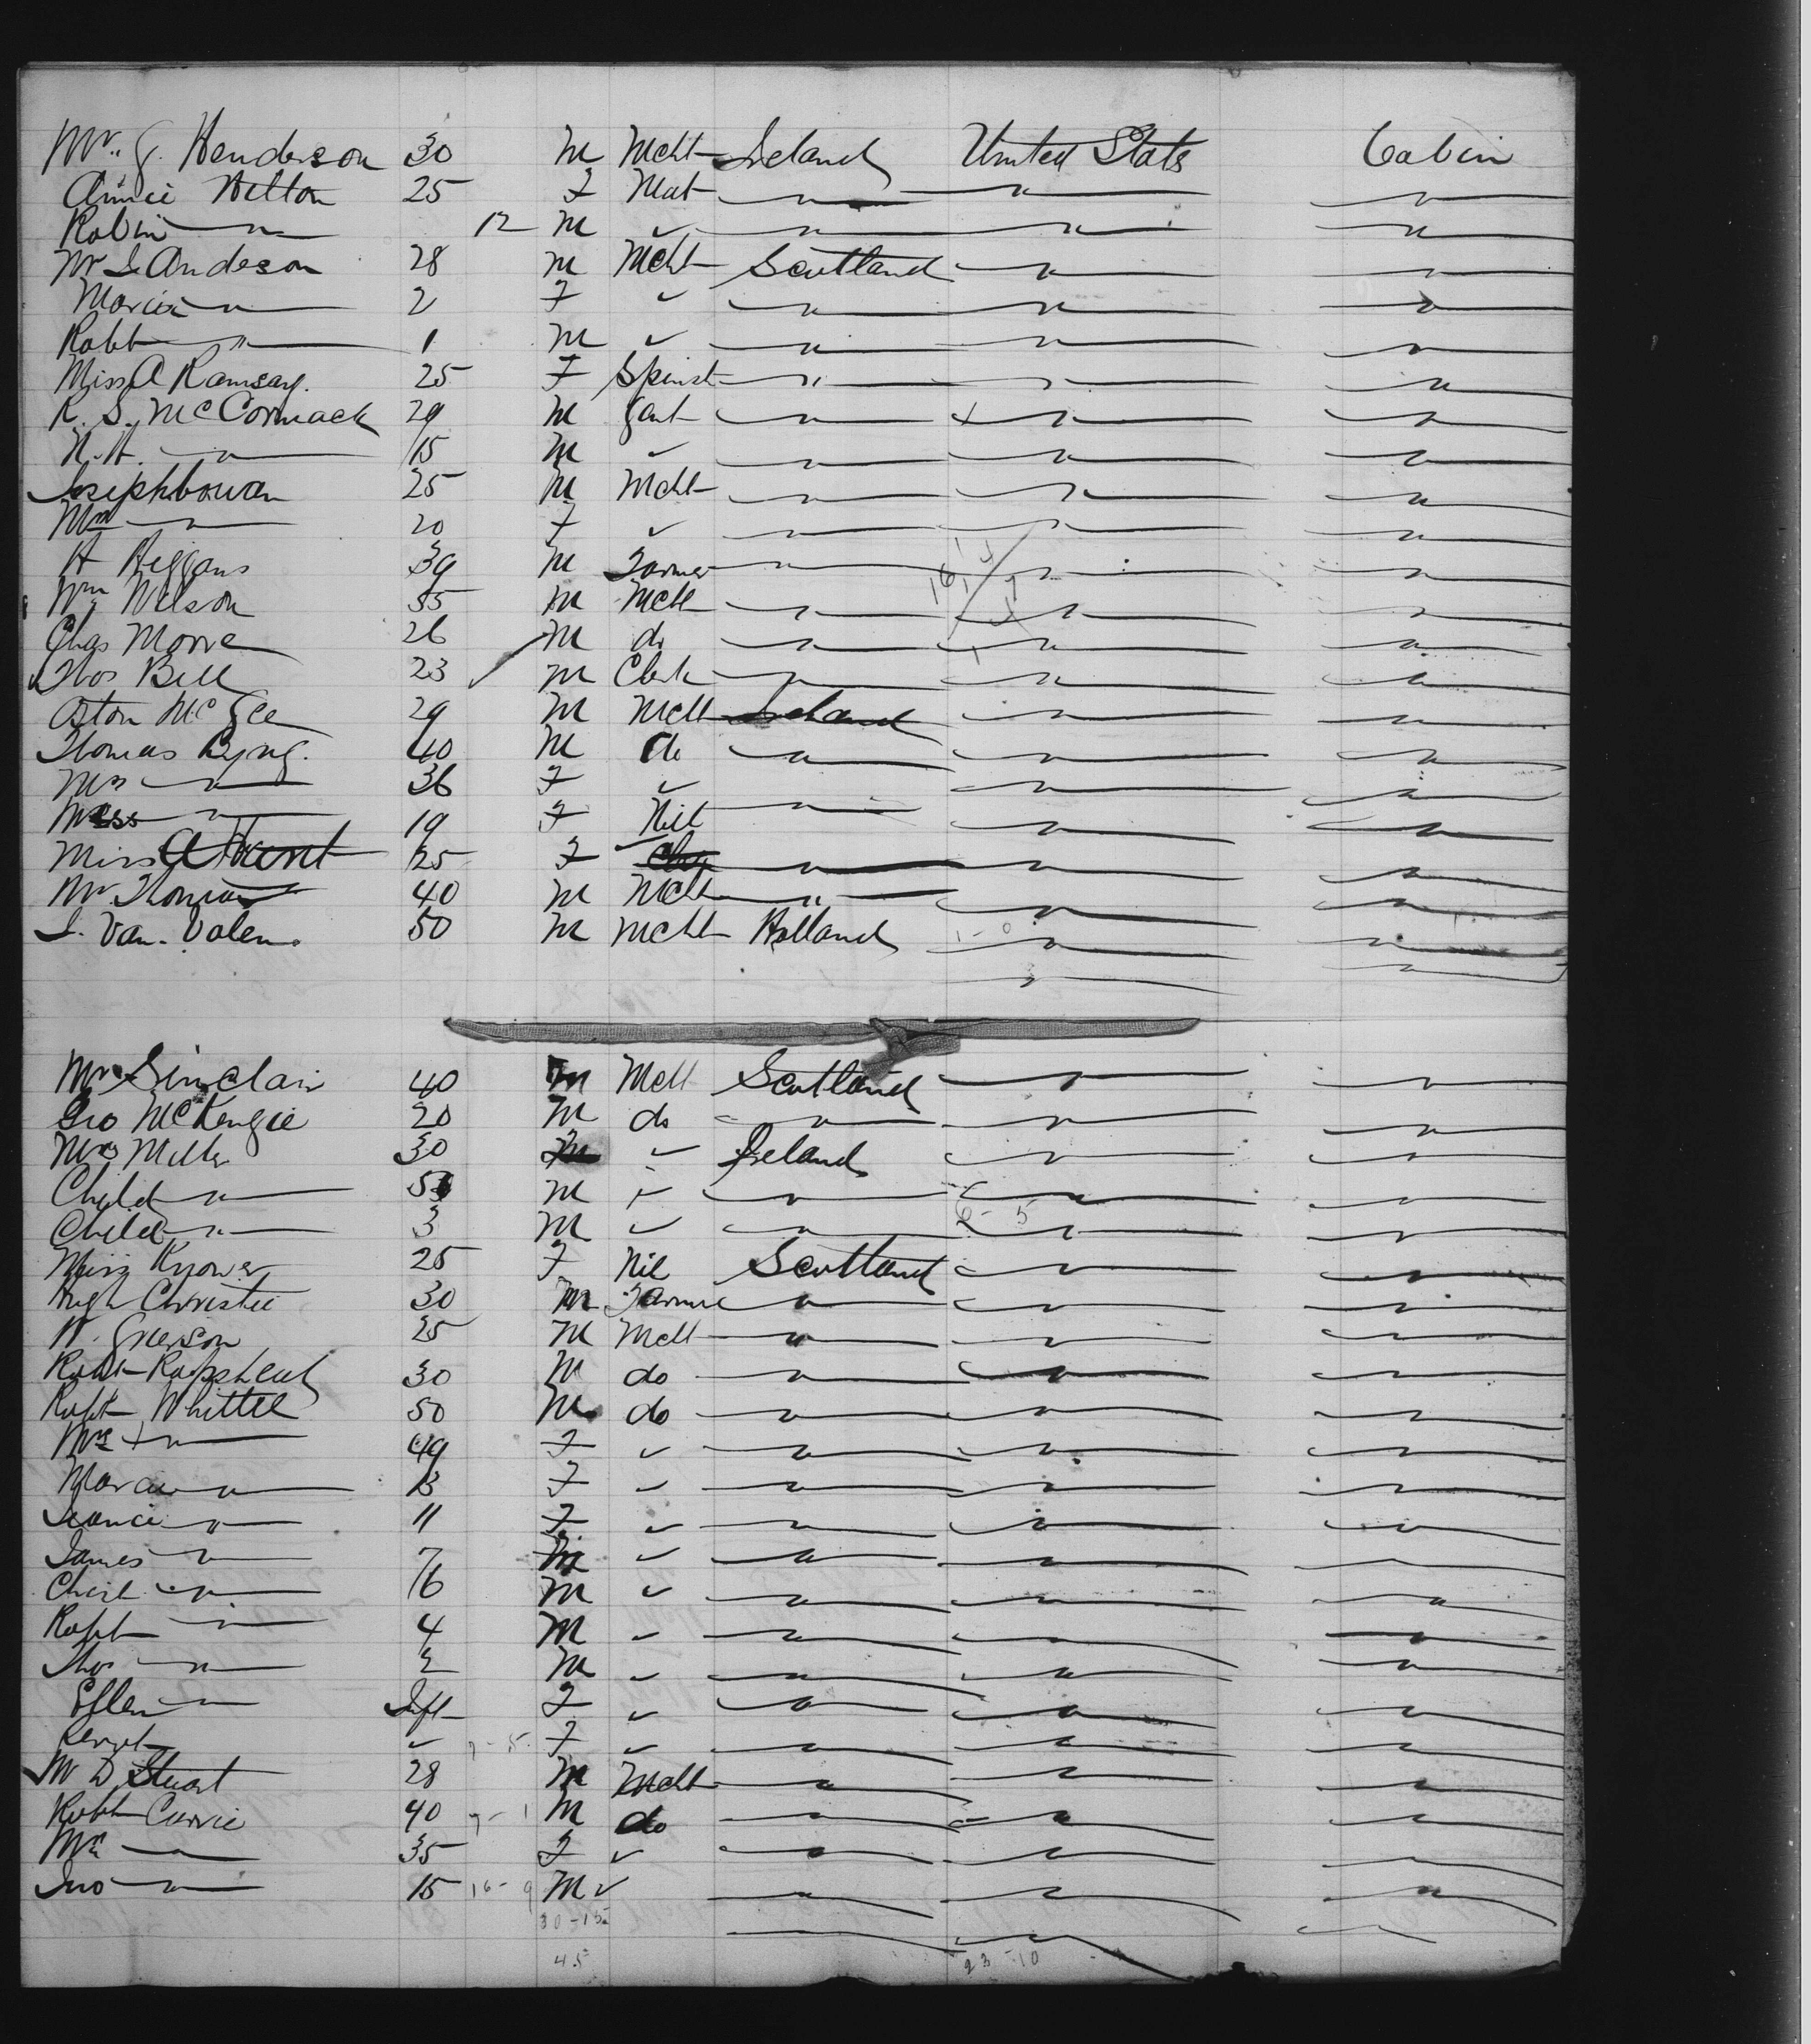 Mr. J. Henderson 30 M Mcht Ireland United States Cabin
Annie Hilton 25 F " " "
Robin " 12 M " " "
Mr J Anderson 28 M Mcht Scotland " "
Maria " 2 F " " "
Robt " 1 M " " "
Miss A Ramsay. 25 F Spinst " " "
R. S. McCormack 29 M Gent " " "
N. A. " 15 M " " "
Joseph 25 M Mcht " " "
Mrs " 20 F " " "
H Higgans 39 M Farmer " " "
Wm Wilson 35 M Mcht " " "
Chas 26 M do " " "
Thos Bell 23 M Clerk " " "
McGee 29 M Mcht Ireland " "
Thomas Byng. 40 M do " " "
Mrs " 36 F " " "
Miss " 19 F Nil " " "
Miss 25 F " " "
Mr Thomas 40 M Mcht " " "
J. Van. Valen. 50 M Mcht Holland " "
Mr Sinclair 40 M Mcht Scotland " "
Geo McKenzie 20 M do " " "
Mrs Miller 30 Ireland " "
Child " 5 M " " "
Child " 3 M " " "
6 - 5
Miss 25 F Nil Scotland " "
Hugh Christie 30 M Farmer " " "
W. Grierson 25 M Mcht " " "
Robt 30 M do " " "
Robt Whittle 50 M do " " "
Mrs " 49 F " " "
" 13 F " " "
" 11 F " " "
James " 7 M " " "
" 6 M " " "
Robt " 4 M " " "
Thos " 2 M " " "
Ellen " Inft F " " "
F " " "
Mr D Stuart 28 M Mcht " " "
Robt Currie 40 M do " " "
Mrs " 35 F " " "
Jno " 15 16 - 9 M " " "
30 - 15
45 23 - 10